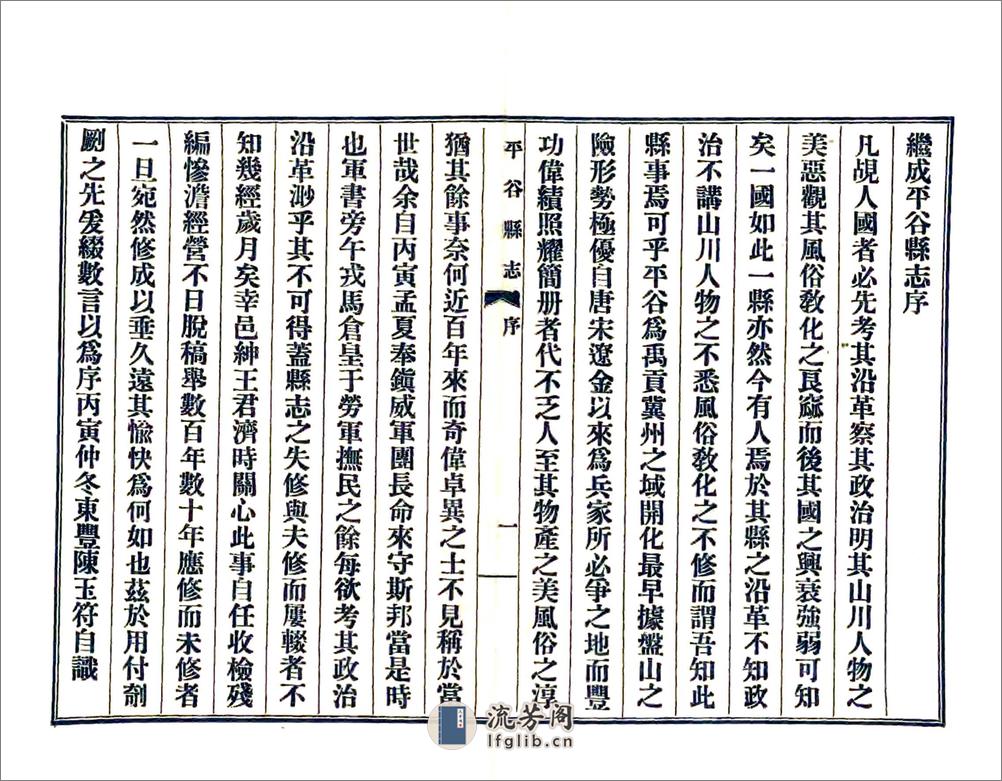 繼成平谷縣志序
凡覘人國者必先考其沿革察其政治明其山川人物之
美惡觀其風俗敎化之良窳而後其國之興衰強弱可知
矣一國如此一縣亦然今有人焉於其縣之沿革不知政
治不講山川人物之不悉風俗敎化之不修而謂吾知此
縣事焉可乎平谷爲禹貢冀州之域開化最早據盤山之
險形勢極優自唐宋遼金以來爲兵家所必爭之地而豐
功偉績照耀簡册者代不乏人至其物產之美風俗之淳
平谷縣志 序 一
猶其餘事奈何近百年來而奇偉卓異之士不見稱於當
世哉余自丙寅孟夏奉鎭威軍團長命來守斯邦當是時
也軍書旁午戎馬倉皇于勞軍撫民之餘每欲考其政治
沿革渺乎其不可得蓋縣志之失修與夫修而屢輟者不
知幾經歲月矣幸邑紳王君濟時關心此事自任收檢殘
編慘澹經營不日脫稿舉數百年數十年應修而未修者
一旦宛然修成以垂久遠其愉快爲何如也茲於用付剞
劂之先爰綴數言以爲序丙寅仲冬東豐陳玉符自識
流芳閣
lfglib.cn